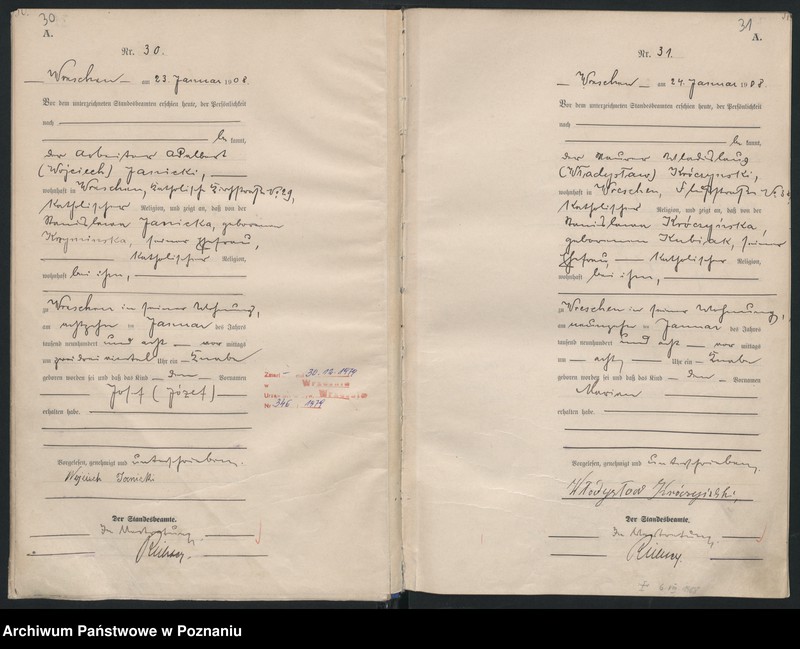 30
A.
Nr. 30.
Wreschen am 23. Januar 1908.
Vor dem unterzeichneten Standesbeamten erschien heute, der Persönlichkeit
nach
be kannt,
der Arbeiter Adalbert
(Wojciech) Janicki,
wohnhaft in Wreschen, Katholisch Kirchstraße No 29,
katholischer Religion, und zeigt an, daß von der
Stanislawa Janicka, geborenen
seiner Ehefrau,
katholischer Religion,
wohnhaft bei ihm,
zu Wreschen in seiner Wohnung,
am achtzehnten Januar des Jahres
tausend neunhundert und acht vor mittags
um zwei drei viertel Uhr ein Knabe
geboren worden sei und daß das Kind den Vornamen
Josef (Józef)
erhalten habe.
Vorgelesen, genehmigt und unterschrieben.
Wojciech Janicki
Der Standesbeamte.
In Vertretung.
30.12.1979
Nr 346 1979
31
A.
Nr. 31.
Wreschen am 24. Januar 1908.
Vor dem unterzeichneten Standesbeamten erschien heute, der Persönlichkeit
nach
be kannt,
der Maurer Wladislaus
(Władysław) Króczyński,
wohnhaft in Wreschen,
katholischer Religion, und zeigt an, daß von der
Stanislawa Króczyńska,
geborenen Kubiak, seiner
Ehefrau, katholischer Religion,
wohnhaft bei ihm,
zu Wreschen in seiner Wohnung,
am neunzehnten Januar des Jahres
tausend neunhundert und acht vor mittags
um acht Uhr ein Knabe
geboren worden sei und daß das Kind den Vornamen
Marian
erhalten habe.
Vorgelesen, genehmigt und unterschrieben.
Władysław Króczyński,
Der Standesbeamte.
In Vertretung.
Archiwum Państwowe w Poznaniu